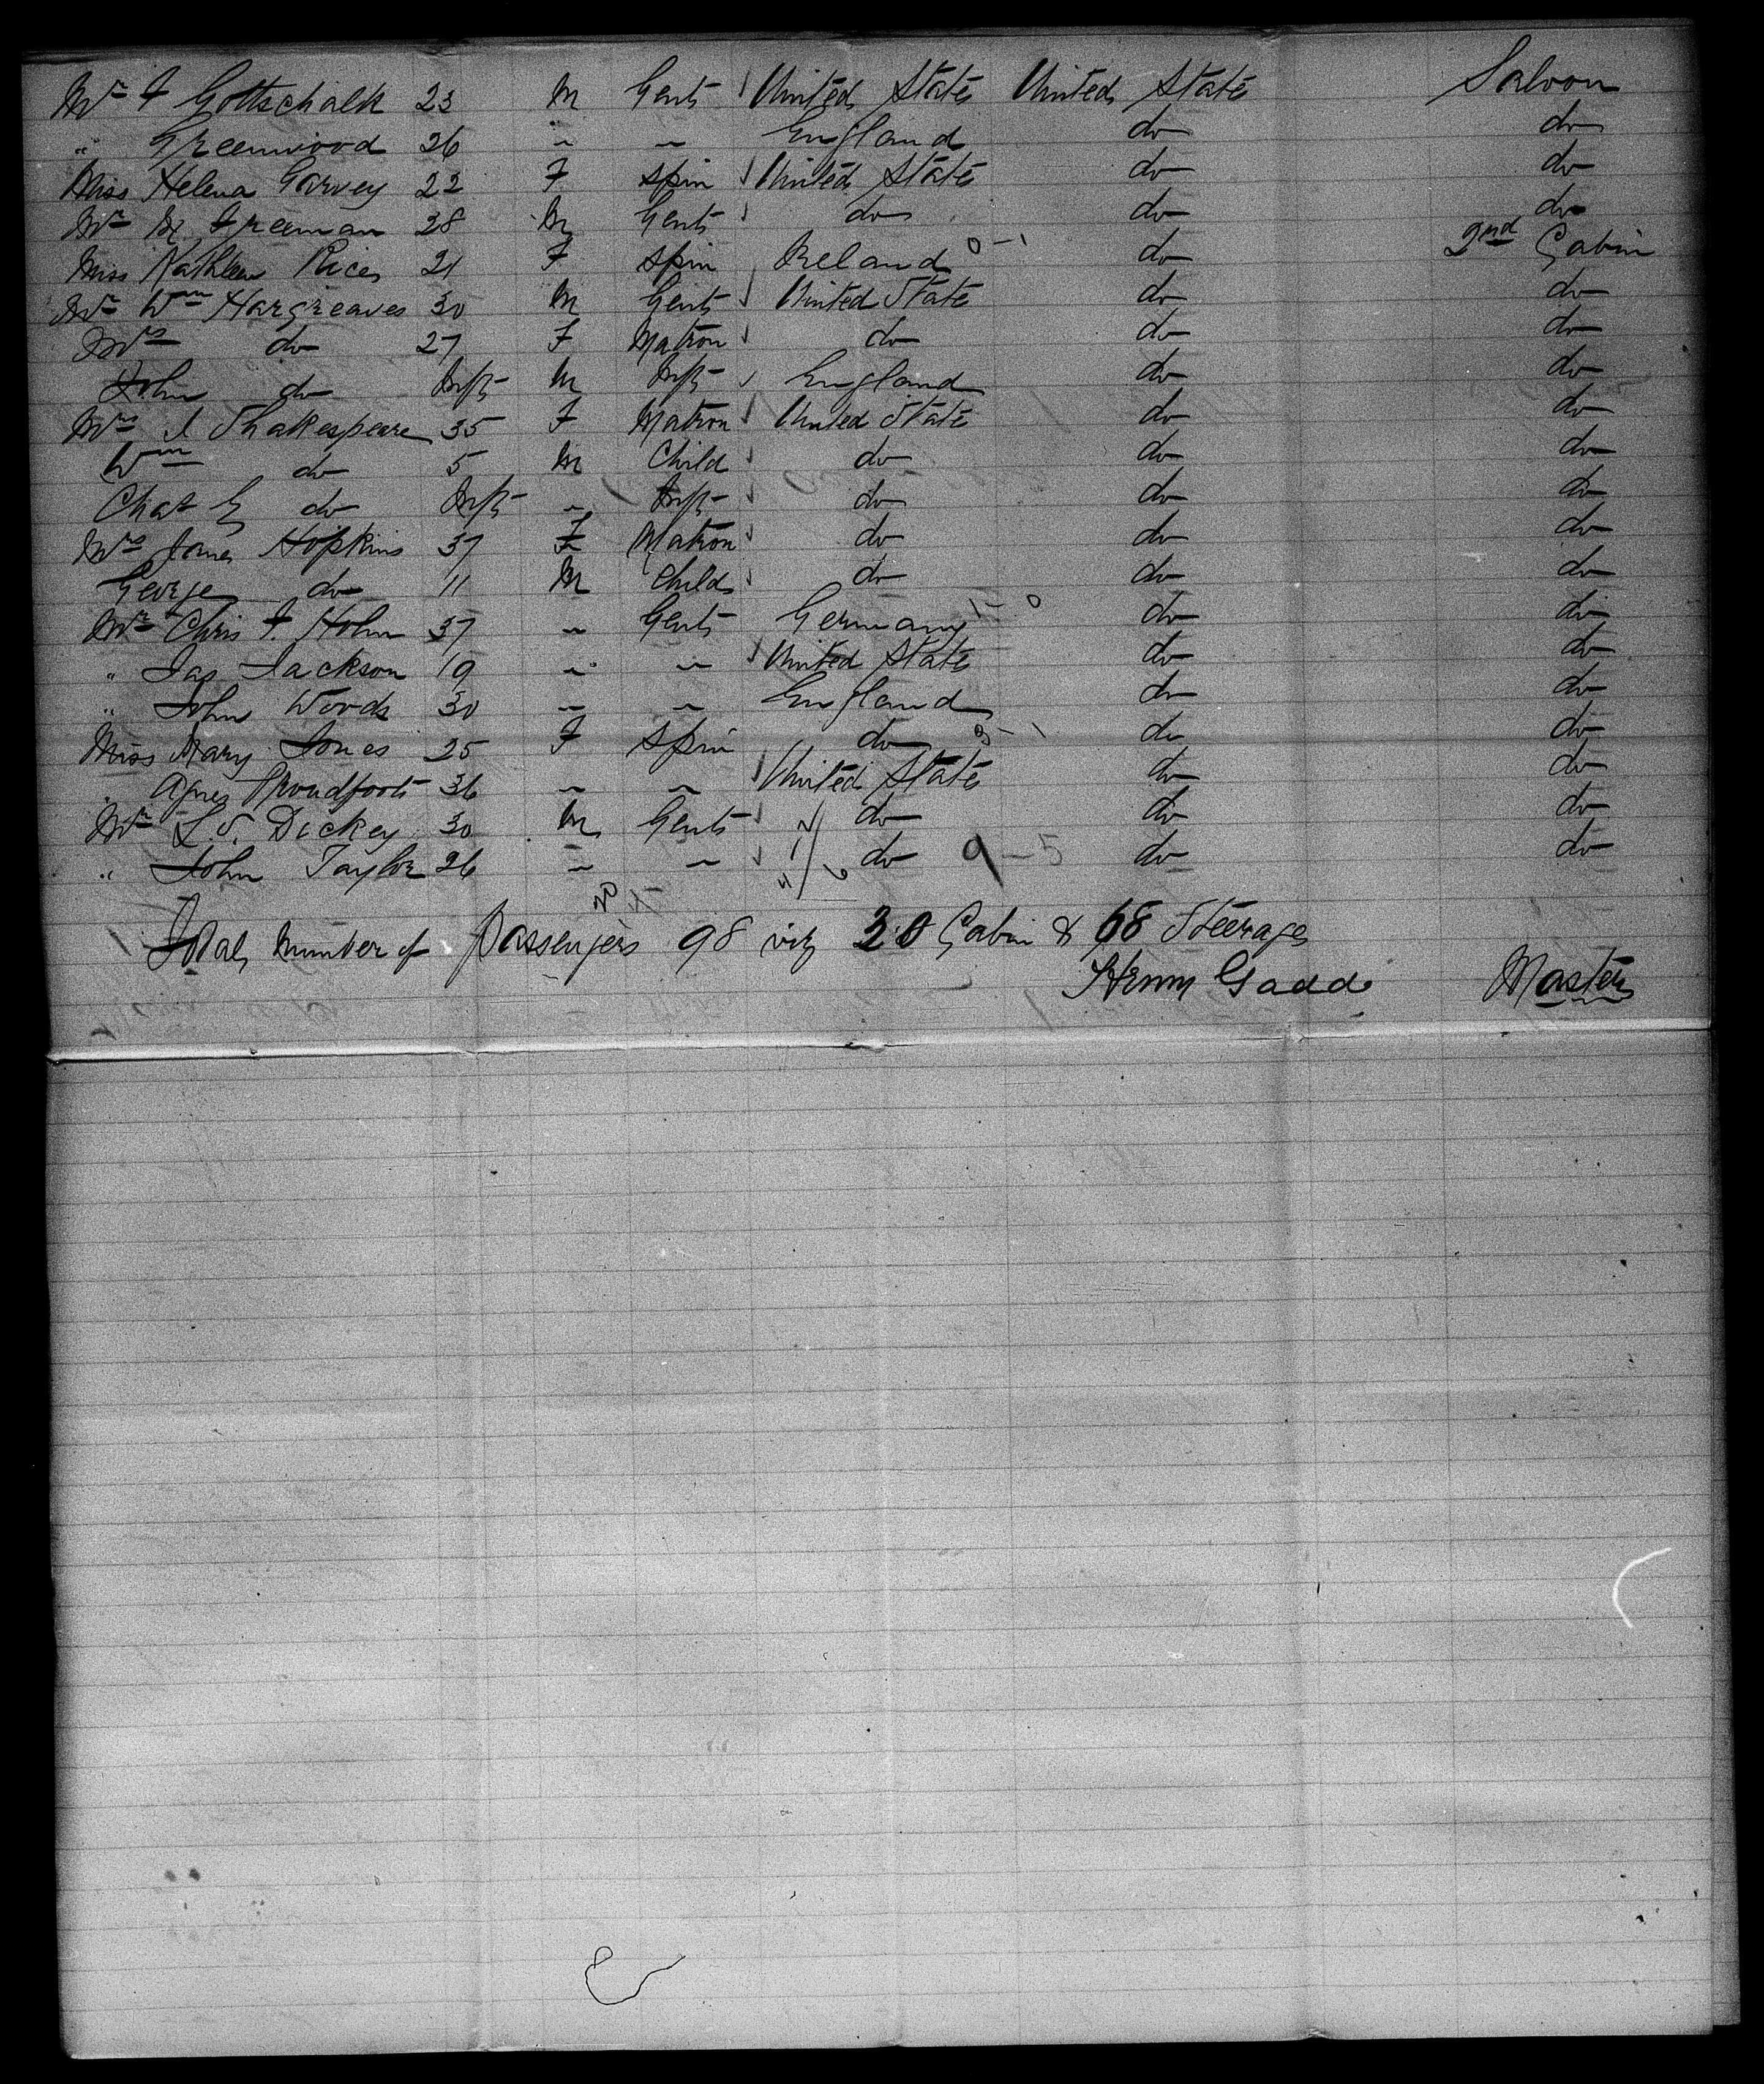 Mr F Gottschalk 23 M Gent United State United State Saloon
" Greenwood 26 " " England do do
Miss Helena Garvey 22 F Spin United State do do
Mr Freeman 28 M Gent do do do
Miss Kathleen Rice 21 F Spin Ireland 0-1 do 2nd Cabin
Mr Wm Hargreaves 30 M Gent United State do do
Mrs do 27 F Matron do do do
John do Inft M Inft England do do
Mrs Shakespeare 35 F Matron United State do do
Wm do 5 M Child do do do
Chas E do Inft " Inft do do do
Mrs Jane Hopkins 37 F Matron do do do
George do 11 M Child do do do
Mr Chris F. Holm 37 " Gent Germany 1-0 do do
" Jas Jackson 19 " " United State do do
" John Woods 30 " " England do do
Miss Mary Jones 25 F Spin do 3-1 do do
" Agnes Proudfoot 36 " " United State do do
Mr L. S. Dickey 30 M Gent do do do
" John Taylor 26 " " do 9-5 do do
Total Number of Passengers 98 viz 30 Cabin & 68 Steerage
Henry Gadd Master